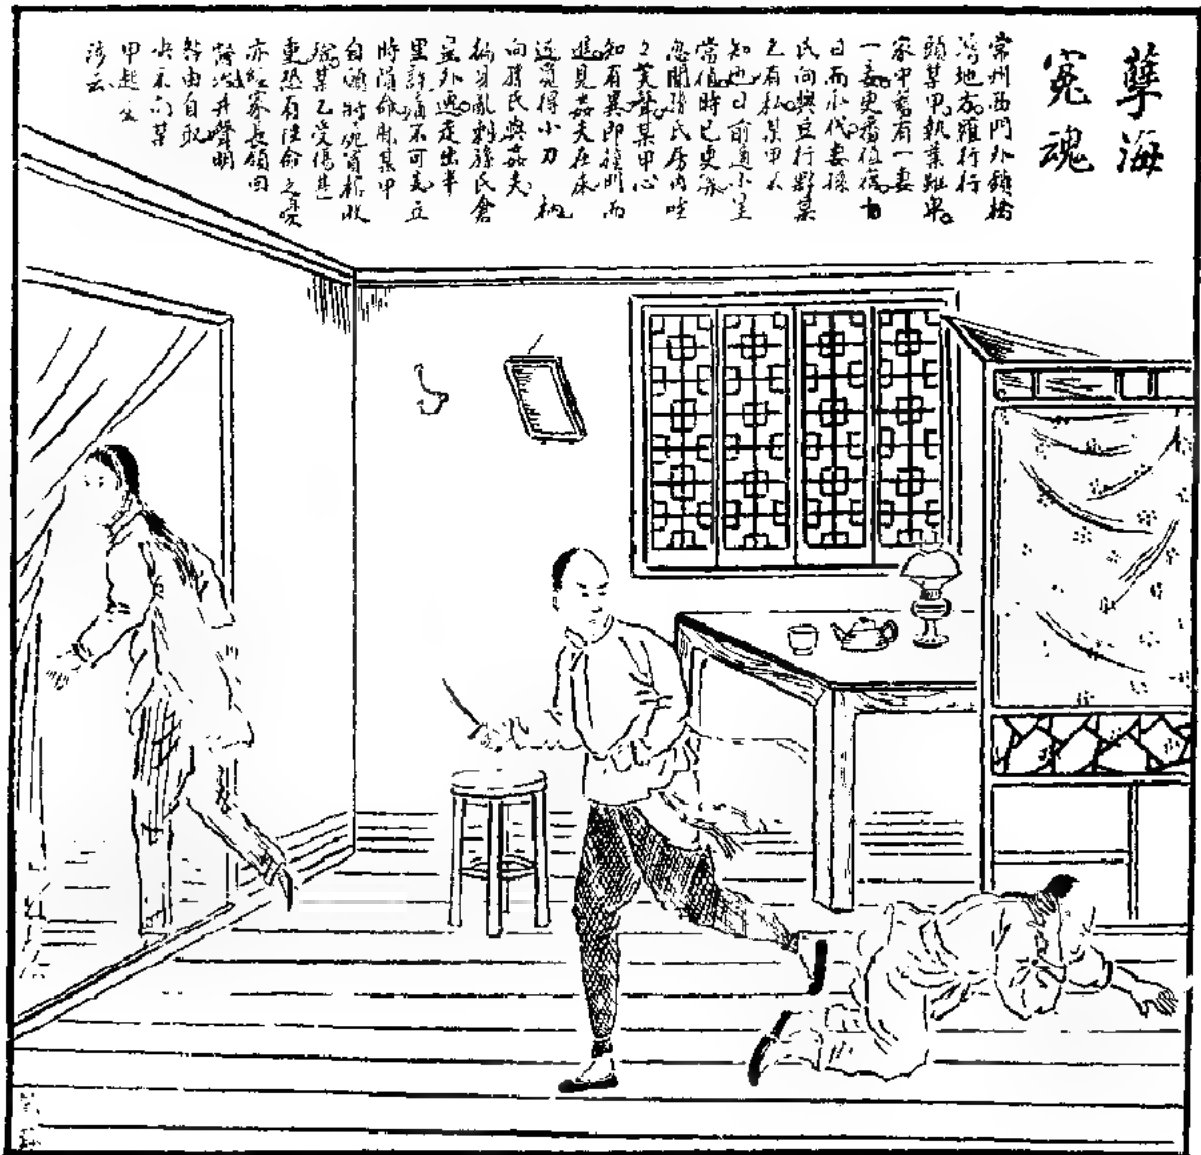 孽海
冤魂
常州西門外鎮橋
灣地方羅行行
頭某甲執業雖卑
家中蓄有一妻
一妾更番值宿
日而水代妻孫
氏向與豆行夥某
乙有私某甲未
知也日前適小星
當值時已更深
忽聞孫氏房內吃
吃笑聲某甲心
知有異即撞門而
進見姦夫在床
遂覓得小刀一柄
向孫氏與姦夫
徧身亂刺孫氏倉
皇外逃走出半
里許痛不可言立
時隕命脈某甲
自願將屍買棺收
殮某乙受傷甚
重恐有性命之虞
亦經家長領回
醫治并聲明
咎由自取
決不向某
甲起交
涉云